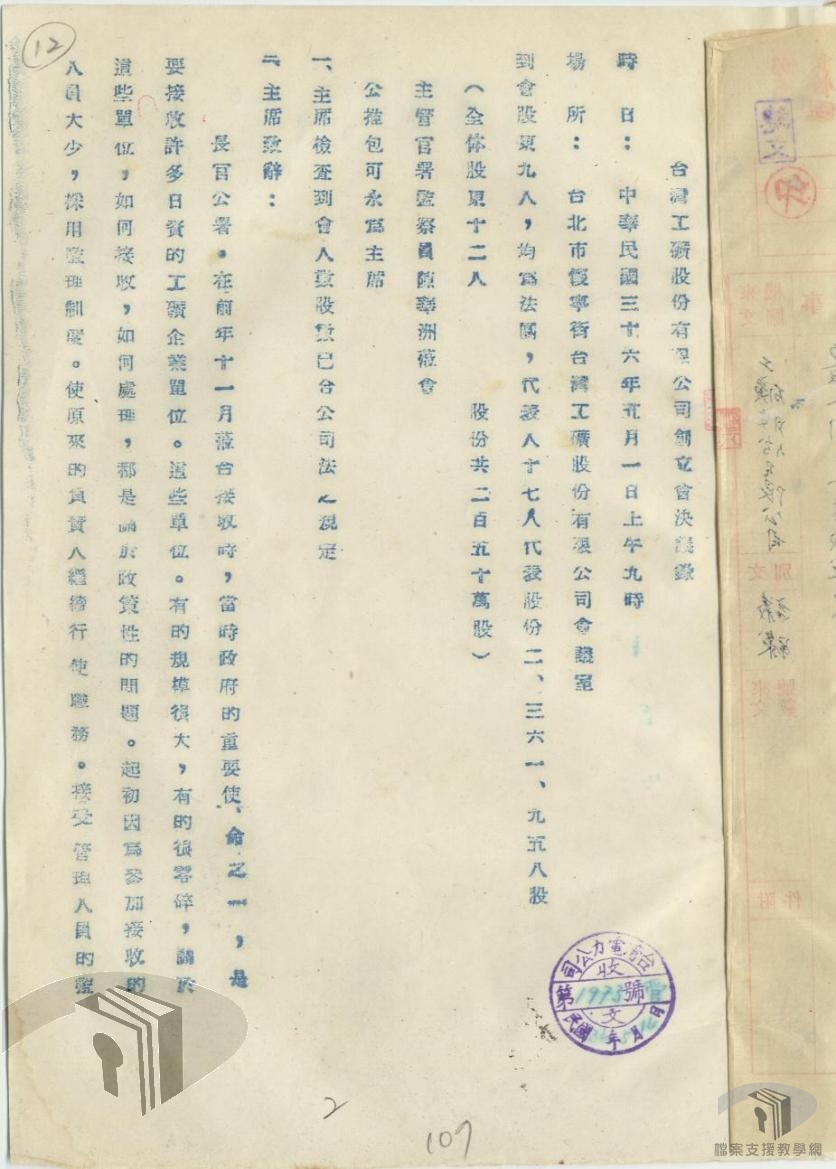 12
台灣工礦股份有限公司創立會決議錄
時　日：　中華民國三十六年五月一日上午九時
場　所：　台北市懷寧街台灣工礦股份有限公司會議室
到會股東九人，均為法團，代表人十七人代表股份二、三六一、九五八股
（全体股東十二人　　　股份共二百五十萬股）
主管官署監察員陳華洲蒞會
公推包可永為主席
一、主席檢查到會人數股數已合公司法之規定
二、主席致辭：
長官公署。在前年十一月蒞台接收時，當時政府的重要使、命之一，是
要接收許多日資的工礦企業單位。這些單位。有的規模很大，有的很零碎，關於
這些單位，如何接收，如何處理，都是關於政策性的問題。起初因為參加接收的
人員太少，採用監理制度。使原來的負責人繼續行使職務。接受管理人員的監
台灣電力公司
收
第1975號
文
民國36年5月14日
2
107
檔案支援教學網